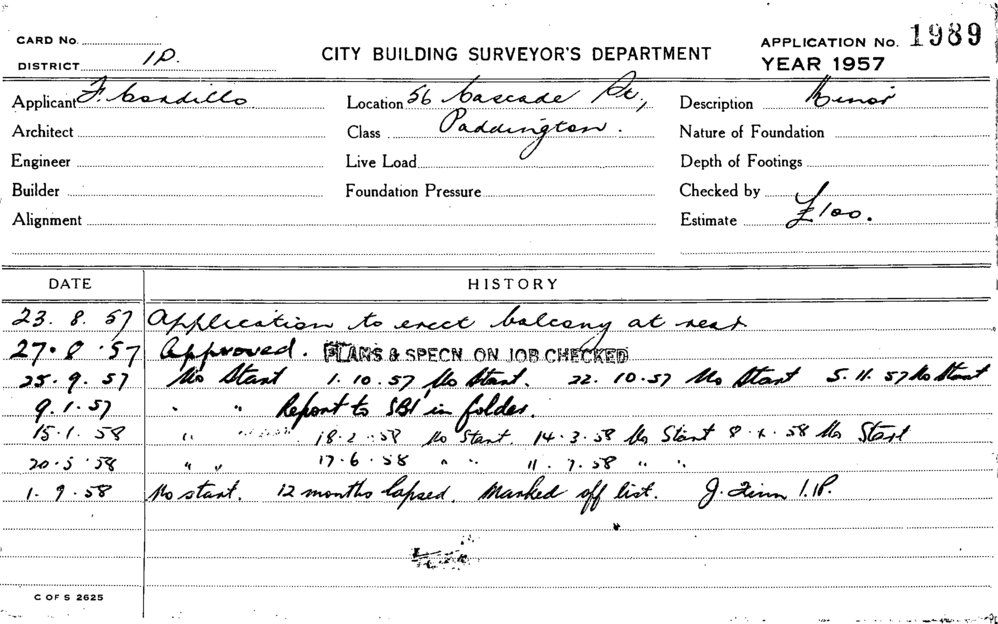 CARD No. CITY BUILDING SURVEYOR'S DEPARTMENT APPLICATION No. 1989
DISTRICT 1P. YEAR 1957
Applicant F. Cordillo Location 56 Cascade St., Description Minor
Architect Class Paddington. Nature of Foundation
Engineer Live Load Depth of Footings
Builder Foundation Pressure Checked by
Alignment Estimate £100.
DATE HISTORY
23. 8. 57 Application to erect balcony at rear
27. 8. 57 Approved. PLANS & SPECN. ON JOB CHECKED
25. 9. 57 No Start 1. 10. 57 No Start. 22. 10. 57 No Start 5. 11. 57 No Start
9. 1. 57 " " Report to SBI in folder.
15. 1. 58 " 18. 2. 58 No Start. 14. 3. 58 No Start 8. 4. 58 No Start
20. 5. 58 " " 17. 6. 58 " " 11. 7. 58 " "
1. 9. 58 No start. 12 months lapsed. Marked off list. J. Finn I.P.
C OF S 2625